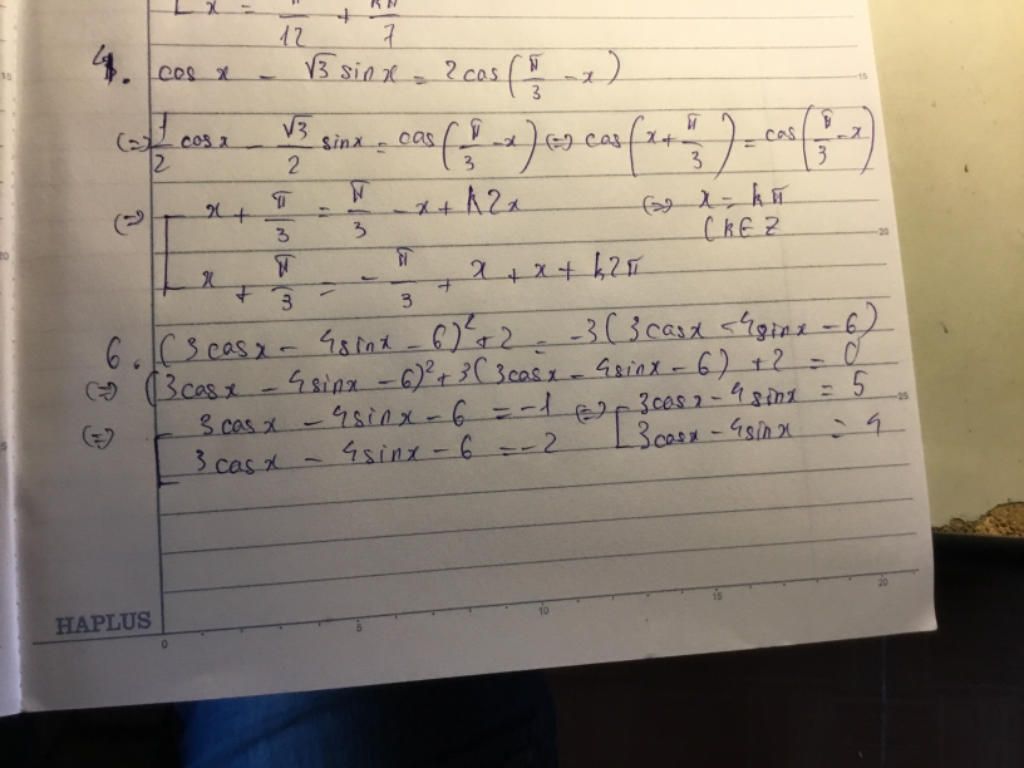 x = π/12 + kπ/7
4. cos x - √3 sinx = 2cos(π/3 - x)
(=) 1/2 cosx - √3/2 sinx = cos(π/3 - x) (=) cos(x + π/3) = cos(π/3 - x)
(=) [ x + π/3 = π/3 - x + k2x (=) x = kπ
(k∈Z
x + π/3 = - π/3 + x + x + k2π
6. (3cosx - 4sinx - 6)² + 2 = -3(3cosx - 4sinx - 6)
(=) (3cosx - 4sinx - 6)² + 3(3cosx - 4sinx - 6) + 2 = 0
(=) [ 3cosx - 4sinx - 6 = -1 (=) [ 3cosx - 4sinx = 5
3cosx - 4sinx - 6 = -2 3cosx - 4sinx = 4
HAPLUS
0 5 10 15 20